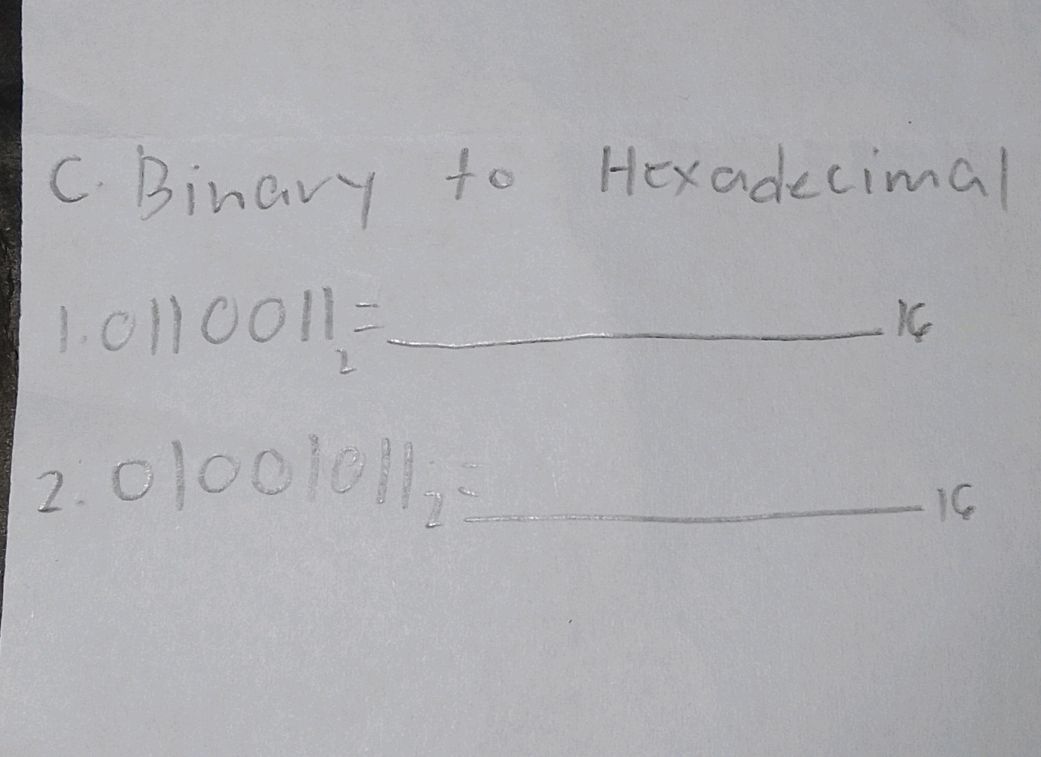 C. Binary to Hexadecimal
1. 0110011₂ = __________ 16
2. 01001011₂ = __________ 16